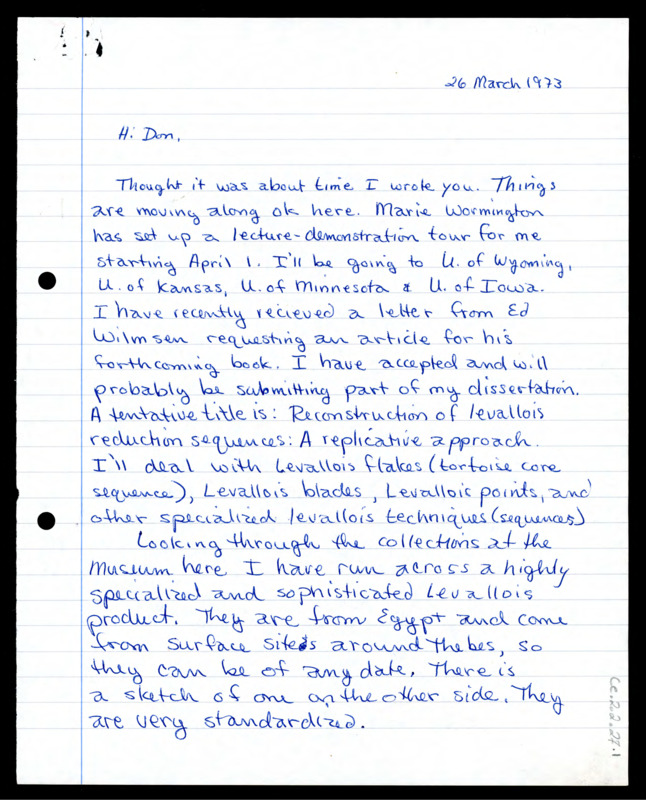 26 March 1973
Hi Don,
Thought it was about time I wrote you. Things
are moving along ok here. Marie Wormington
has set up a lecture-demonstration tour for me
starting April 1. I'll be going to U. of Wyoming,
U. of Kansas, U. of Minnesota & U. of Iowa.
I have recently recieved a letter from Ed
Wilmsen requesting an article for his
forthcoming book. I have accepted and will
probably be submitting part of my dissertation.
A tentative title is: Reconstruction of levallois
reduction sequences: A replicative approach.
I'll deal with Levallois flakes (tortoise core
sequence), Levallois blades, Levallois points, and
other specialized levallois techniques (sequences)
Looking through the collections at the
Museum here I have run across a highly
specialized and sophisticated Levallois
product. They are from Egypt and come
from surface sites around Thebes, so
they can be of any date. There is
a sketch of one on the other side. They
are very standardized.
Ce.2.2.27.1